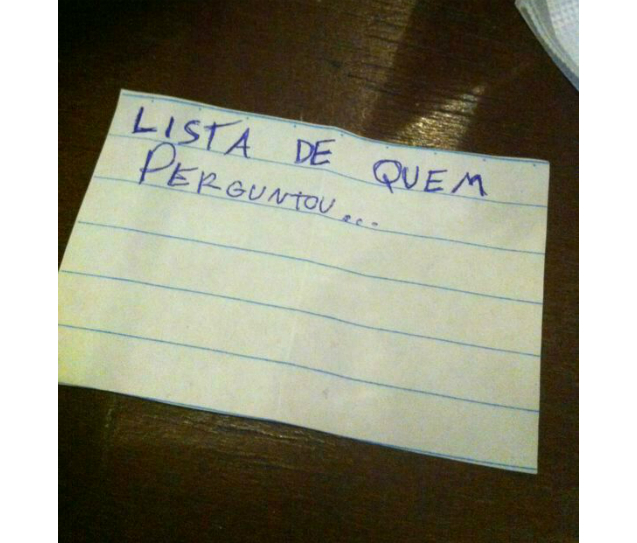 LISTA DE QUEM
PERGUNTOU...